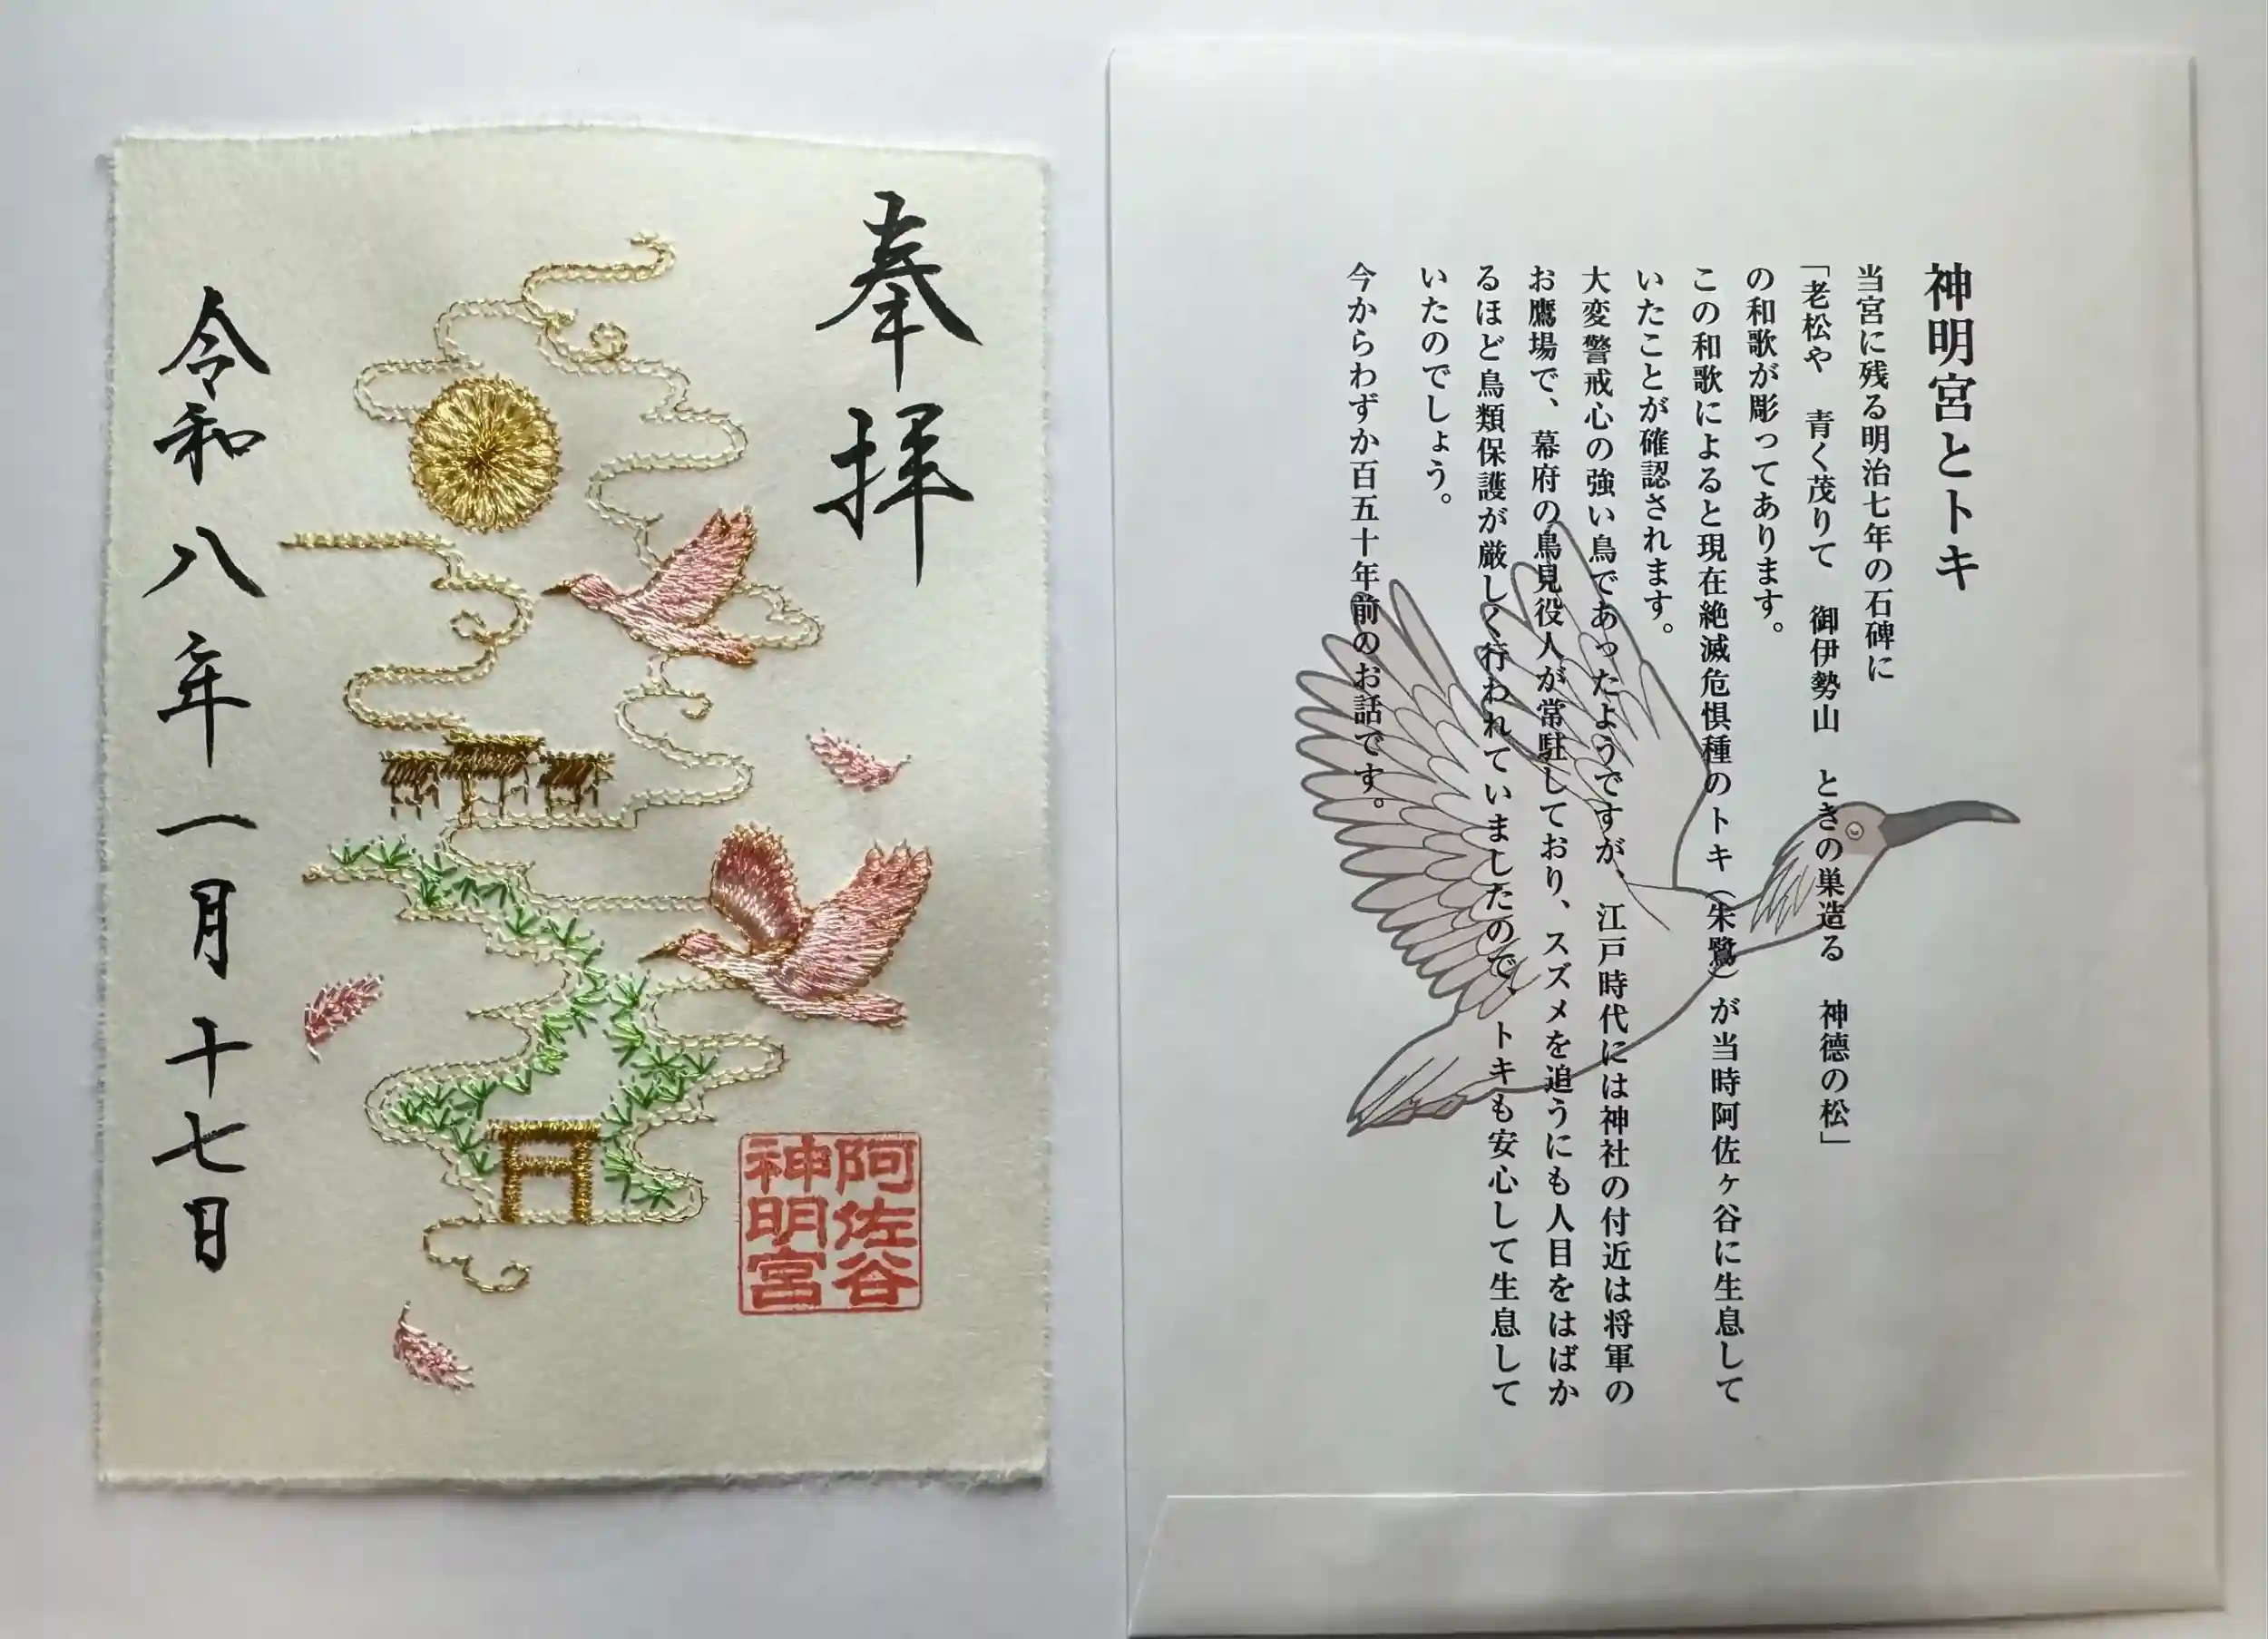 奉拝
阿佐谷
神明宮
令和八年一月十七日
神明宮とトキ
当宮に残る明治七年の石碑に
「老松や　青く茂りて　御伊勢山　ときの巣造る　神德の松」
の和歌が彫ってあります。
この和歌によると現在絶滅危惧種のトキ（朱鷺）が当時阿佐ヶ谷に生息して
いたことが確認されます。
大変警戒心の強い鳥であったようですが、江戸時代には神社の付近は将軍の
お鷹場で、幕府の鳥見役人が常駐しており、スズメを追うにも人目をはばか
るほど鳥類保護が厳しく行われていましたので、トキも安心して生息して
いたのでしょう。
今からわずか百五十年前のお話です。